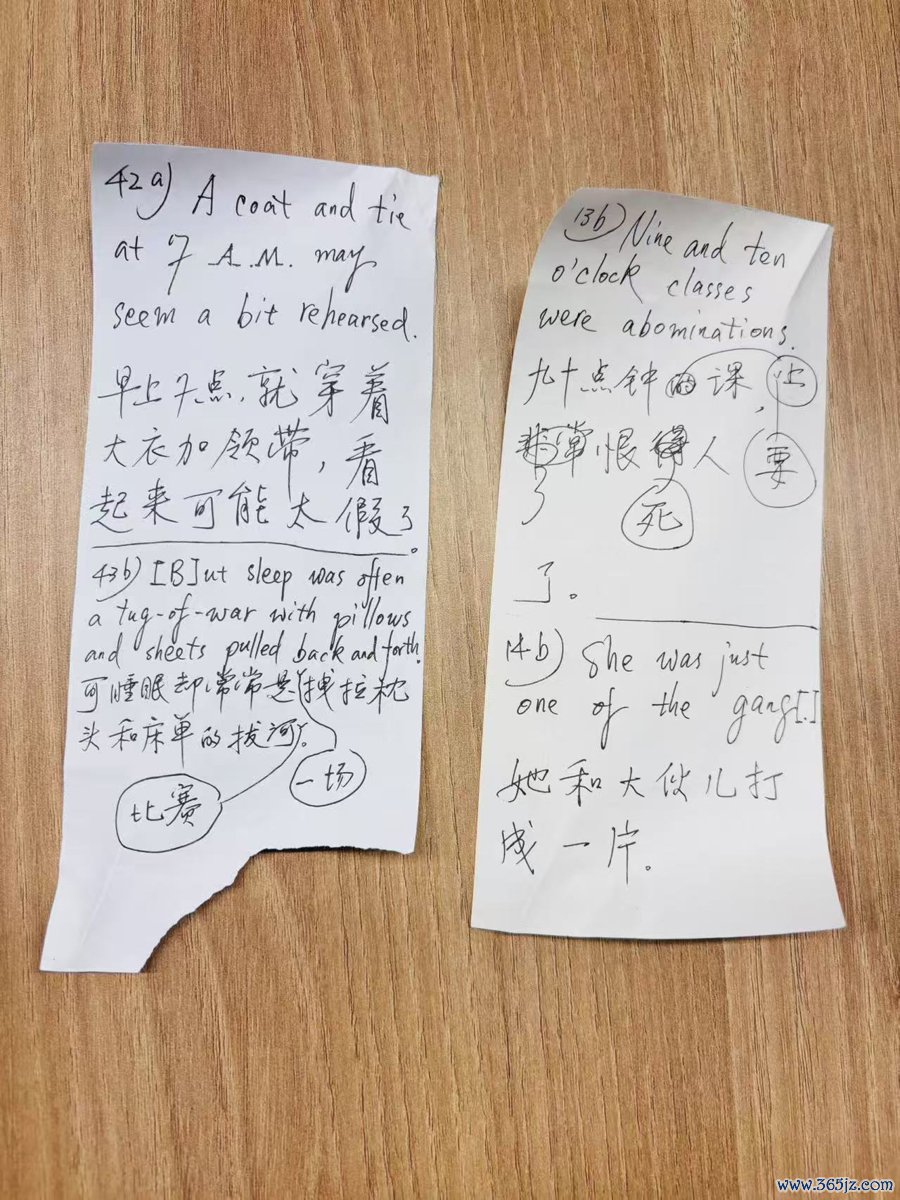 42a) A coat and tie
at 7 A.M. may
seem a bit rehearsed.
早上7点,就穿着
大衣加领带,看
起来可能太假了。
43b) [B]ut sleep was often
a tug-of-war with pillows
and sheets pulled back and forth.
可睡眠却常常是拽拉枕
头和床单的拔河。
一场
比赛
13b) Nine and ten
o'clock classes
were abominations.
九十点钟的课,上
恨人
要
死
了。
14b) She was just
one of the gang[.]
她和大伙儿打
成一片。
www.365jz.com